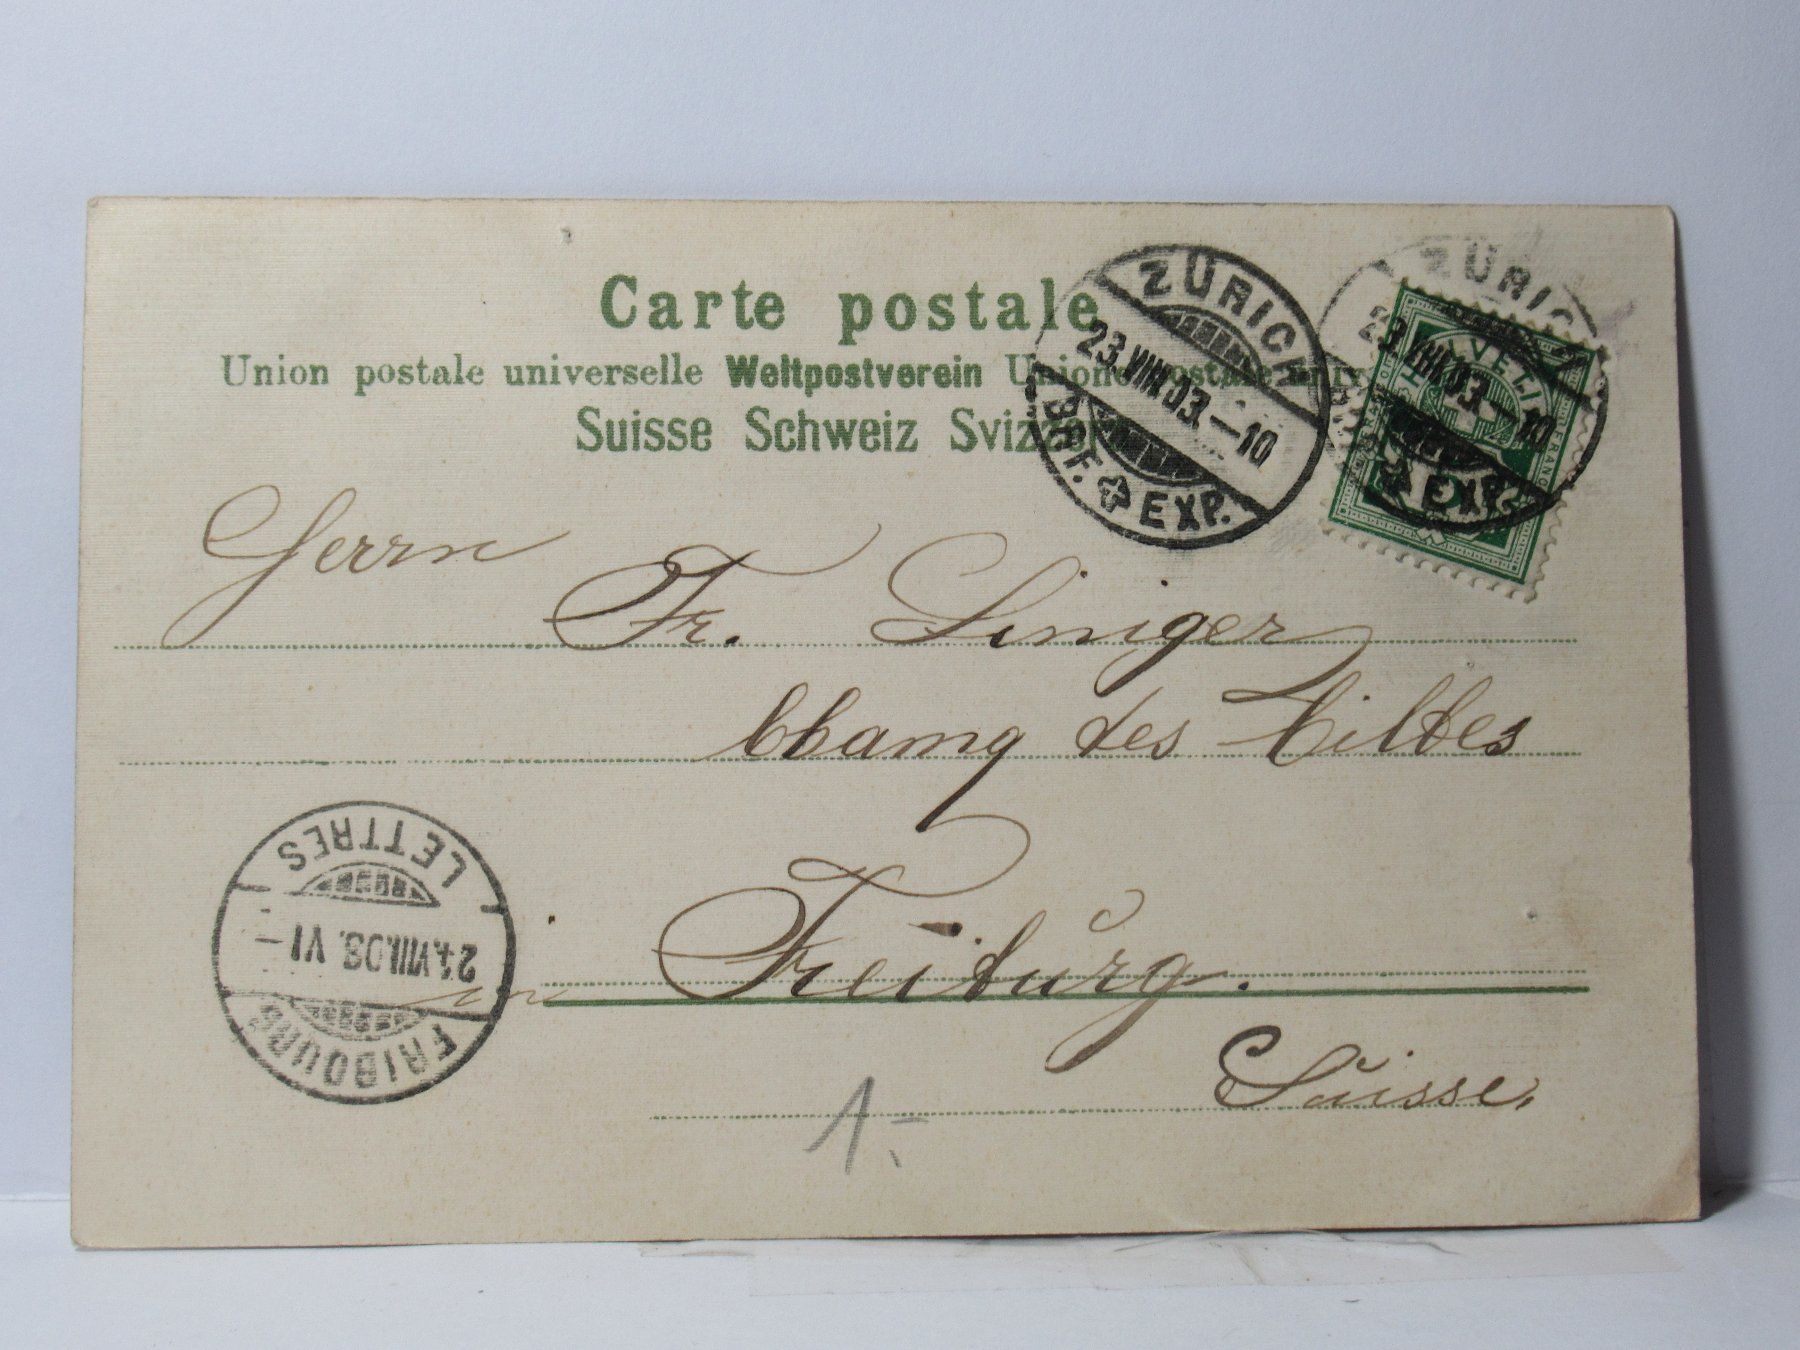 Carte postale
Union postale universelle Weltpostverein Unione postale univ
Suisse Schweiz Svizze
ZÜRICH
23.VIII.03.—10
BRF. EXP.
ZÜRIC
23.VIII.03.—10
EXP.
HELVETI
FRANCO
Herrn Fr. Siniger
Chamq des Cilbes
in Freiburg.
Suisse,
LETTRES
24.VIII.03. VI—
FRIBOURG
1.-